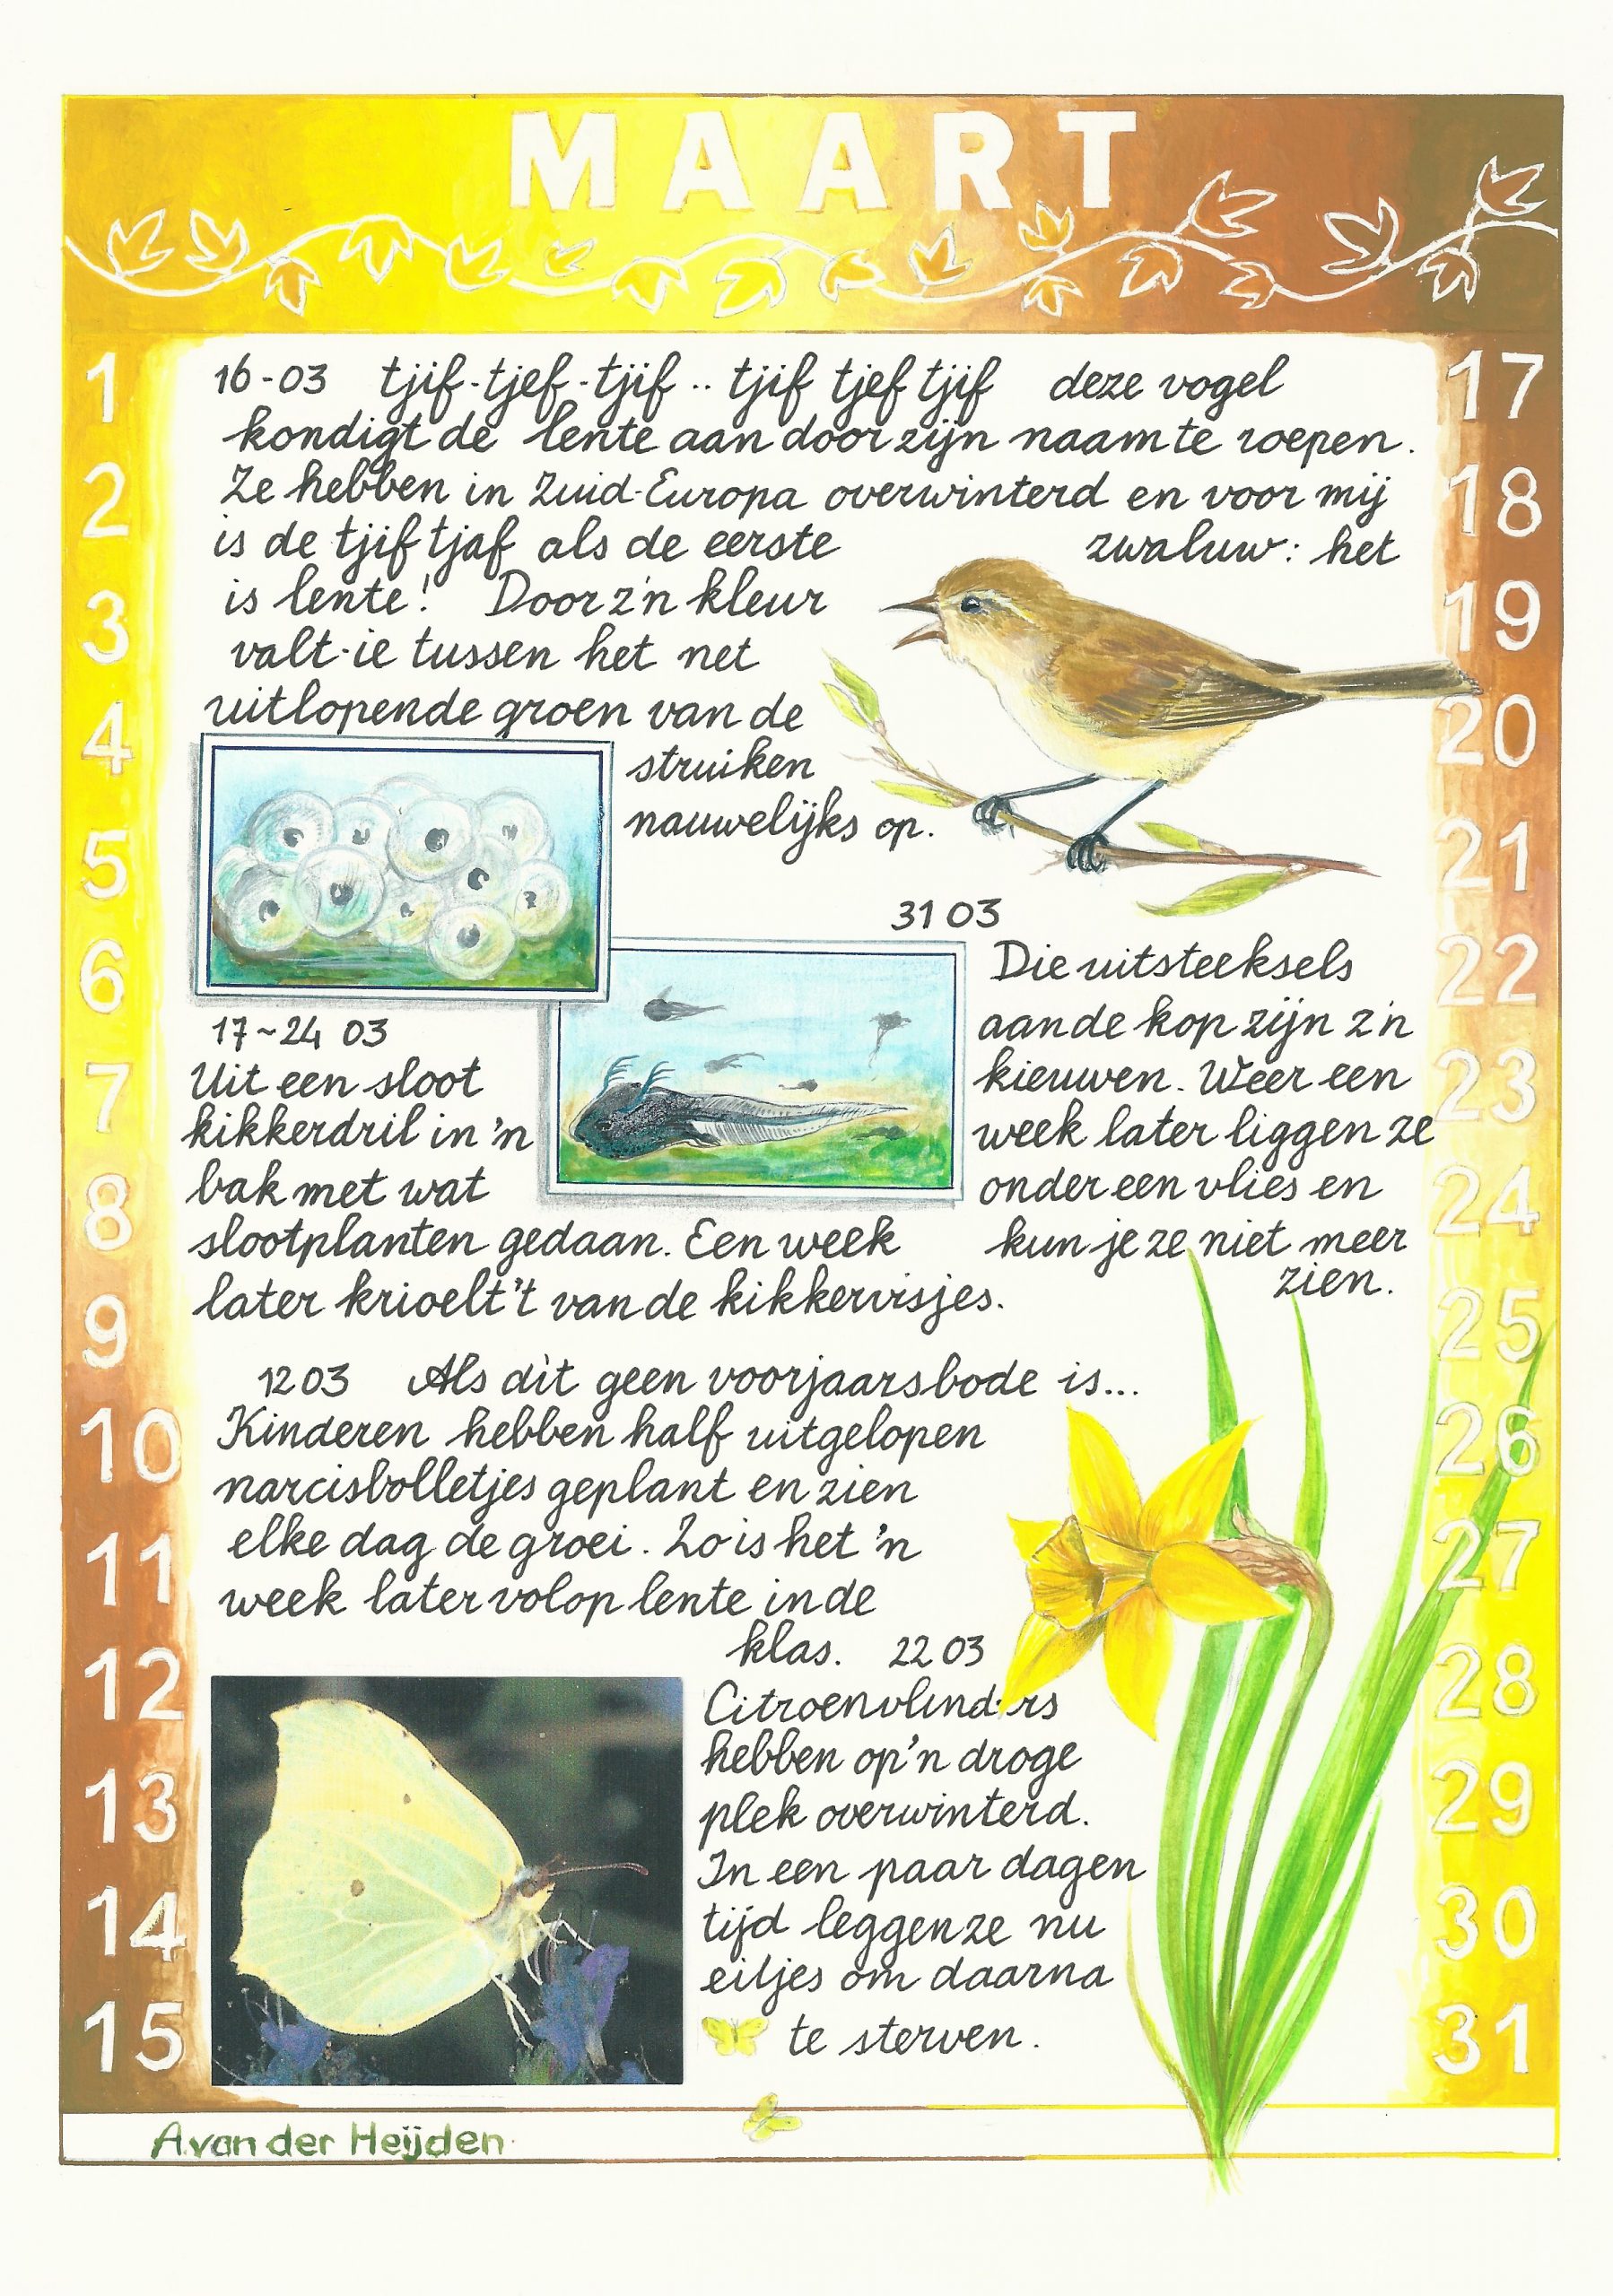 MAART
1
2
3
4
5
6
7
8
9
10
11
12
13
14
15
16-03 tjif-tjef-tjif .. tjif tjef tjif deze vogel
kondigt de lente aan door zijn naam te roepen.
Ze hebben in Zuid-Europa overwinterd en voor mij
is de tjif tjaf als de eerste zwaluw: het
is lente! Door z'n kleur
valt-ie tussen het net
uitlopende groen van de
struiken
nauwelijks op.
17~24 03
Uit een sloot
kikkerdril in 'n
bak met wat
slootplanten gedaan. Een week
later krioelt 't van de kikkervisjes.
31 03
Die uitsteeksels
aan de kop zijn z'n
kieuwen. Weer een
week later liggen ze
onder een vlies en
kun je ze niet meer
zien.
12 03 Als dìt geen voorjaarsbode is...
Kinderen hebben half uitgelopen
narcisbolletjes geplant en zien
elke dag de groei. Zo is het 'n
week later volop lente in de
klas. 22 03
Citroenvlinders
hebben op 'n droge
plek overwinterd.
In een paar dagen
tijd leggen ze nu
eitjes om daarna
te sterven.
17
18
19
20
21
22
23
24
25
26
27
28
29
30
31
A.van der Heijden